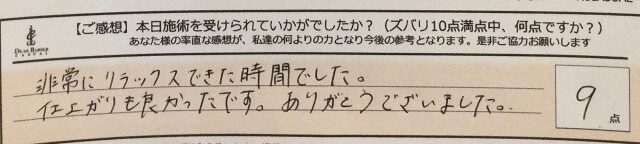 【ご感想】本日施術を受けられていかがでしたか？（ズバリ10点満点中、何点ですか？）
あなた様の率直な感想が、私達の何よりの力となり今後の参考となります。是非ご協力お願いします
DEAR BARBER
非常にリラックスできた時間でした。
仕上がりも良かったです。ありがとうございました。
9
点